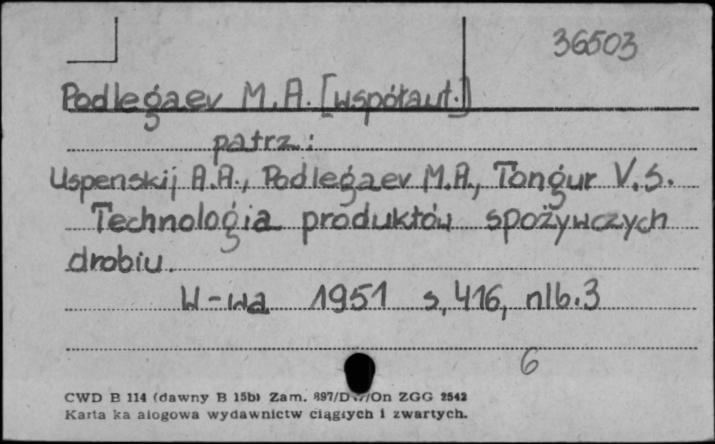 36503
Podlegaev M.A. [współaut.]
patrz:
Uspenskij A.A., Podlegaev M.A., Tongur V.S.
Technologia produktów spożywczych
drobiu.
W-wa 1951 s, 416, nlb. 3
6
CWD B 114 (dawny B 15b) Zam. 897/D /On ZGG 2542
Karta ka alogowa wydawnictw ciągłych i zwartych.